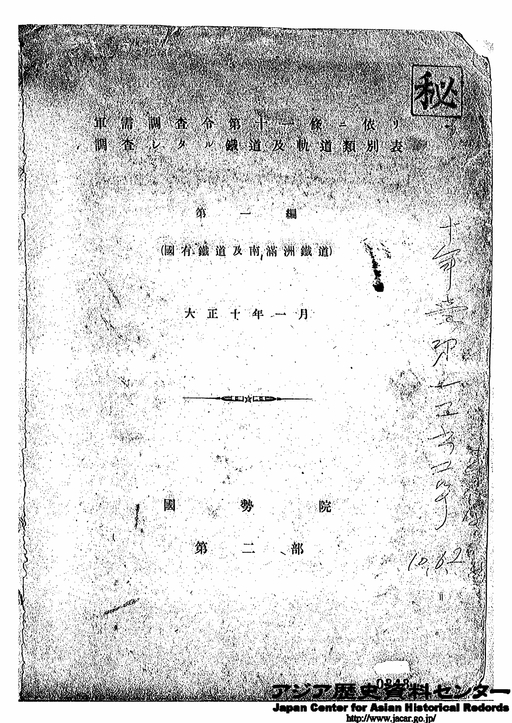 秘
軍需調査令第十一條ニ依リ
調査シタル鐵道及軌道類別表
第一編
(國有鐵道及南滿洲鐵道)
大正十年一月
國勢院
第二部
10.6.2
アジア歴史資料センター
Japan Center for Asian Historical Records
http://www.jacar.go.jp/